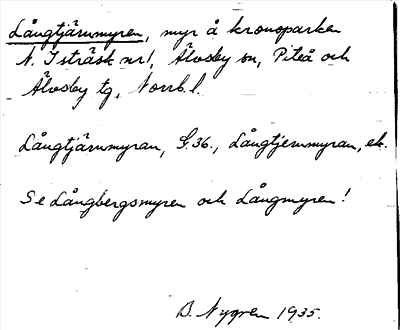 Långtjärnmyren, myr å kronoparken
N. Isträsk nr 1, Älvsby sn, Piteå och
Älvsby tg, Norrb. l.
Långtjärnmyran, S. 36., Långtjernmyran, ek.
Se Långbergsmyren och Långmyren!
B. Nygren 1935.